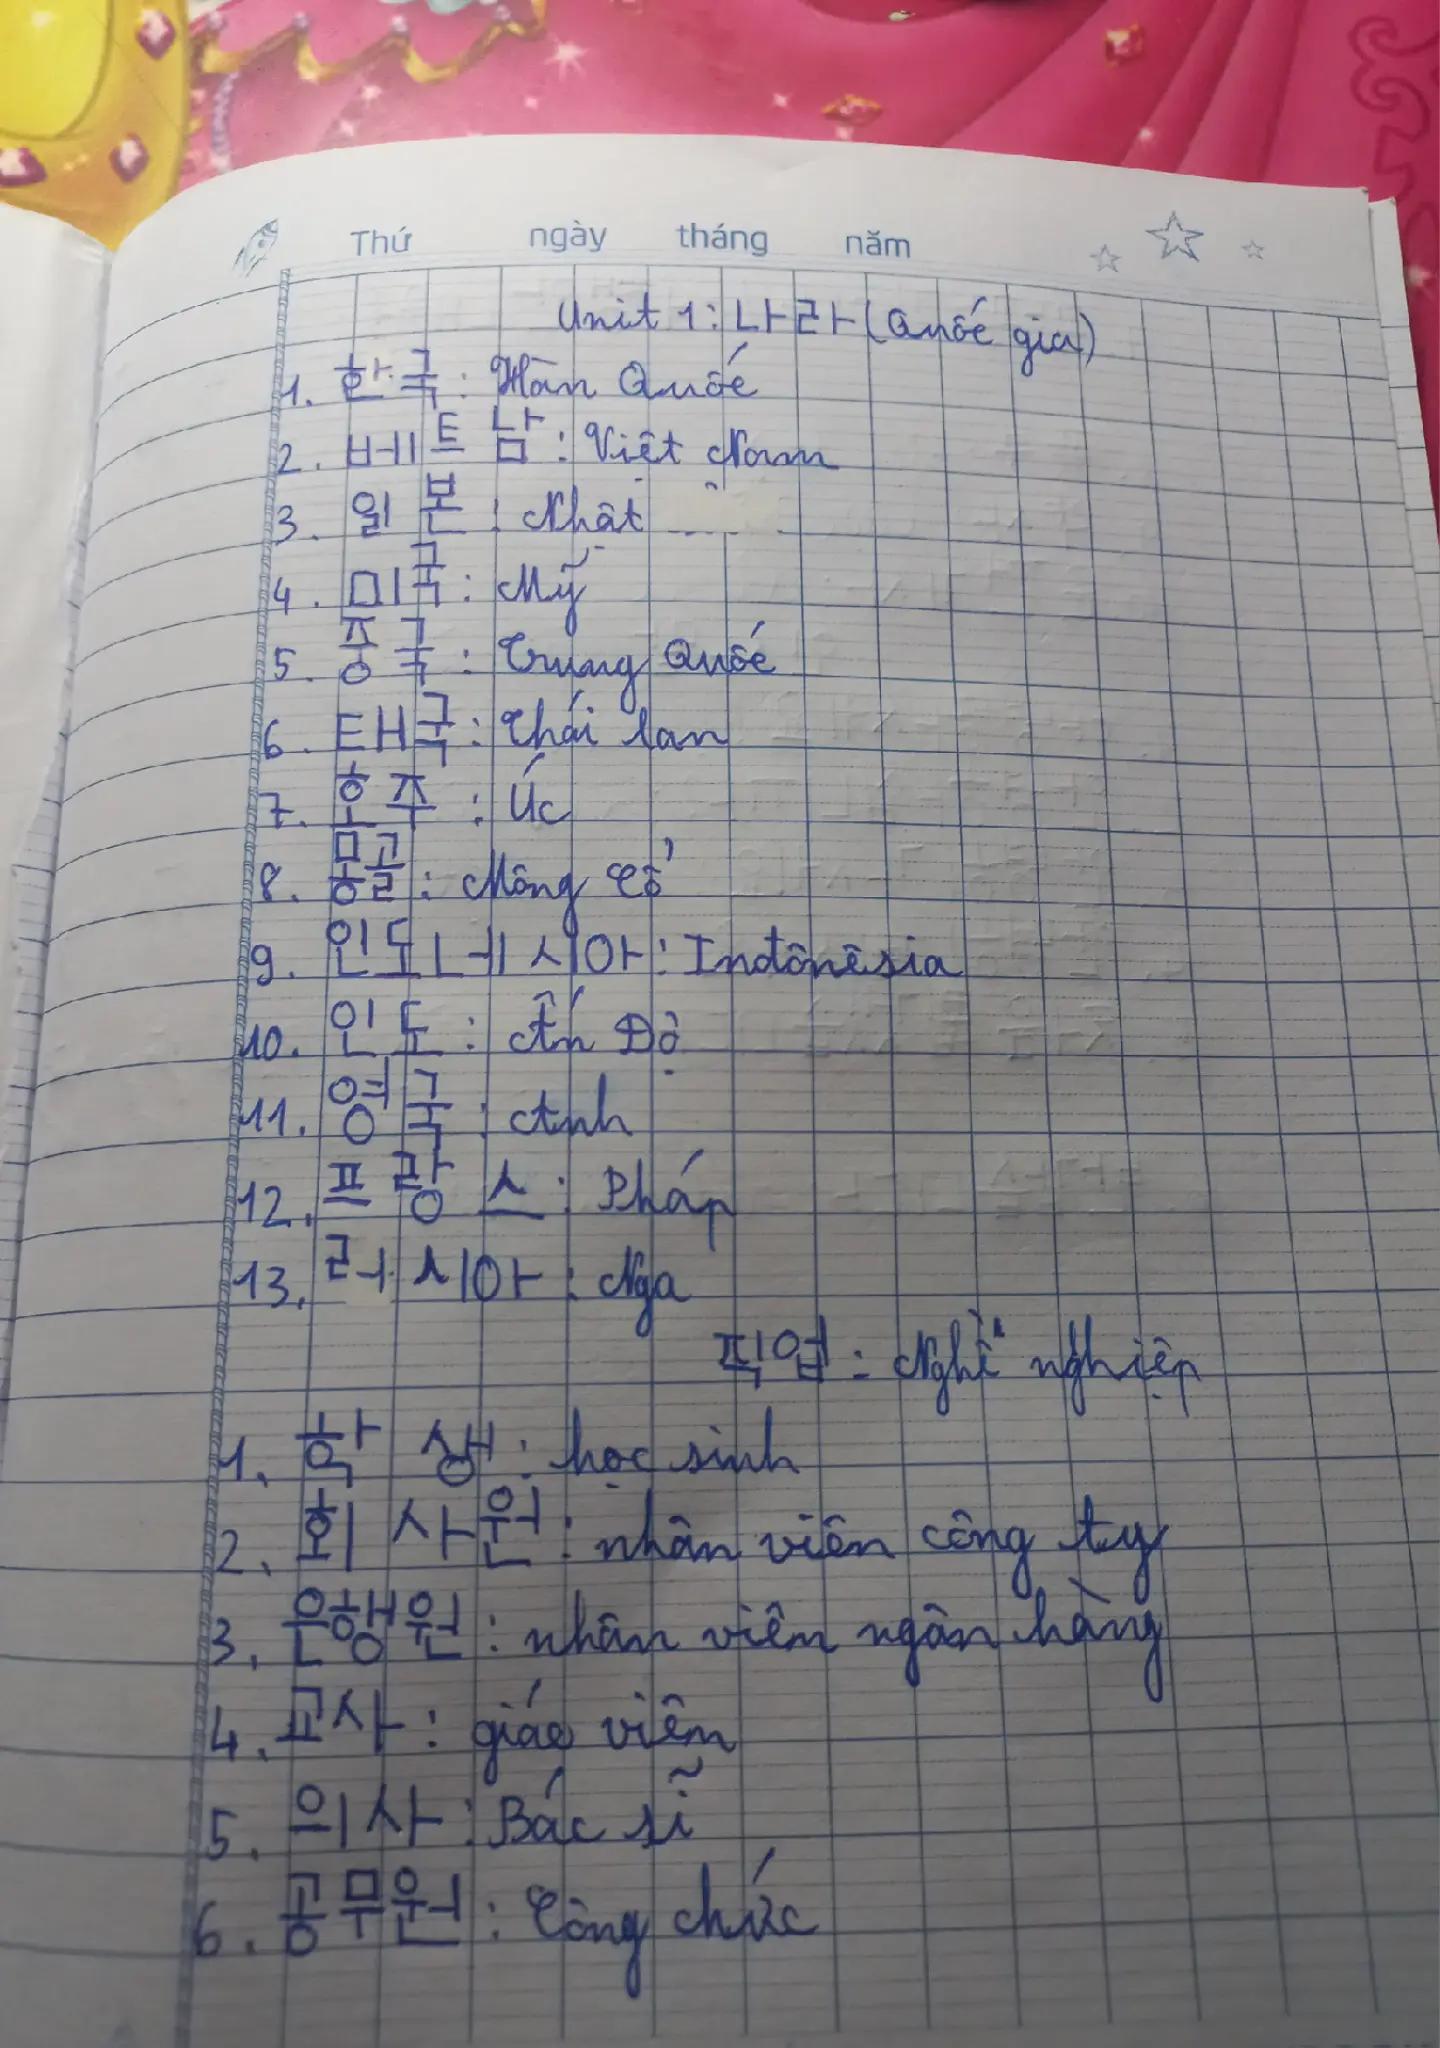 Thứ ngày tháng năm
Unit 1: 나라 (Quốc gia)
1. 한국: Hàn Quốc
2. 베트남: Việt Nam
3. 일본: Nhật
4. 미국: Mỹ
5. 중국: Trung Quốc
6. 태국: Thái lan
7. 호주: Úc
8. 몽골: Mông Cổ
9. 인도네시아: Indônêsia
10. 인도: Ấn Độ
11. 영국: Anh
12. 프랑스: Pháp
13. 러시아: Nga
직업: Nghề nghiệp
1. 학생: học sinh
2. 회사원: nhân viên công ty
3. 은행원: nhân viên ngân hàng
4. 교사: giáo viên
5. 의사: Bác sĩ
6. 공무원: Công chức